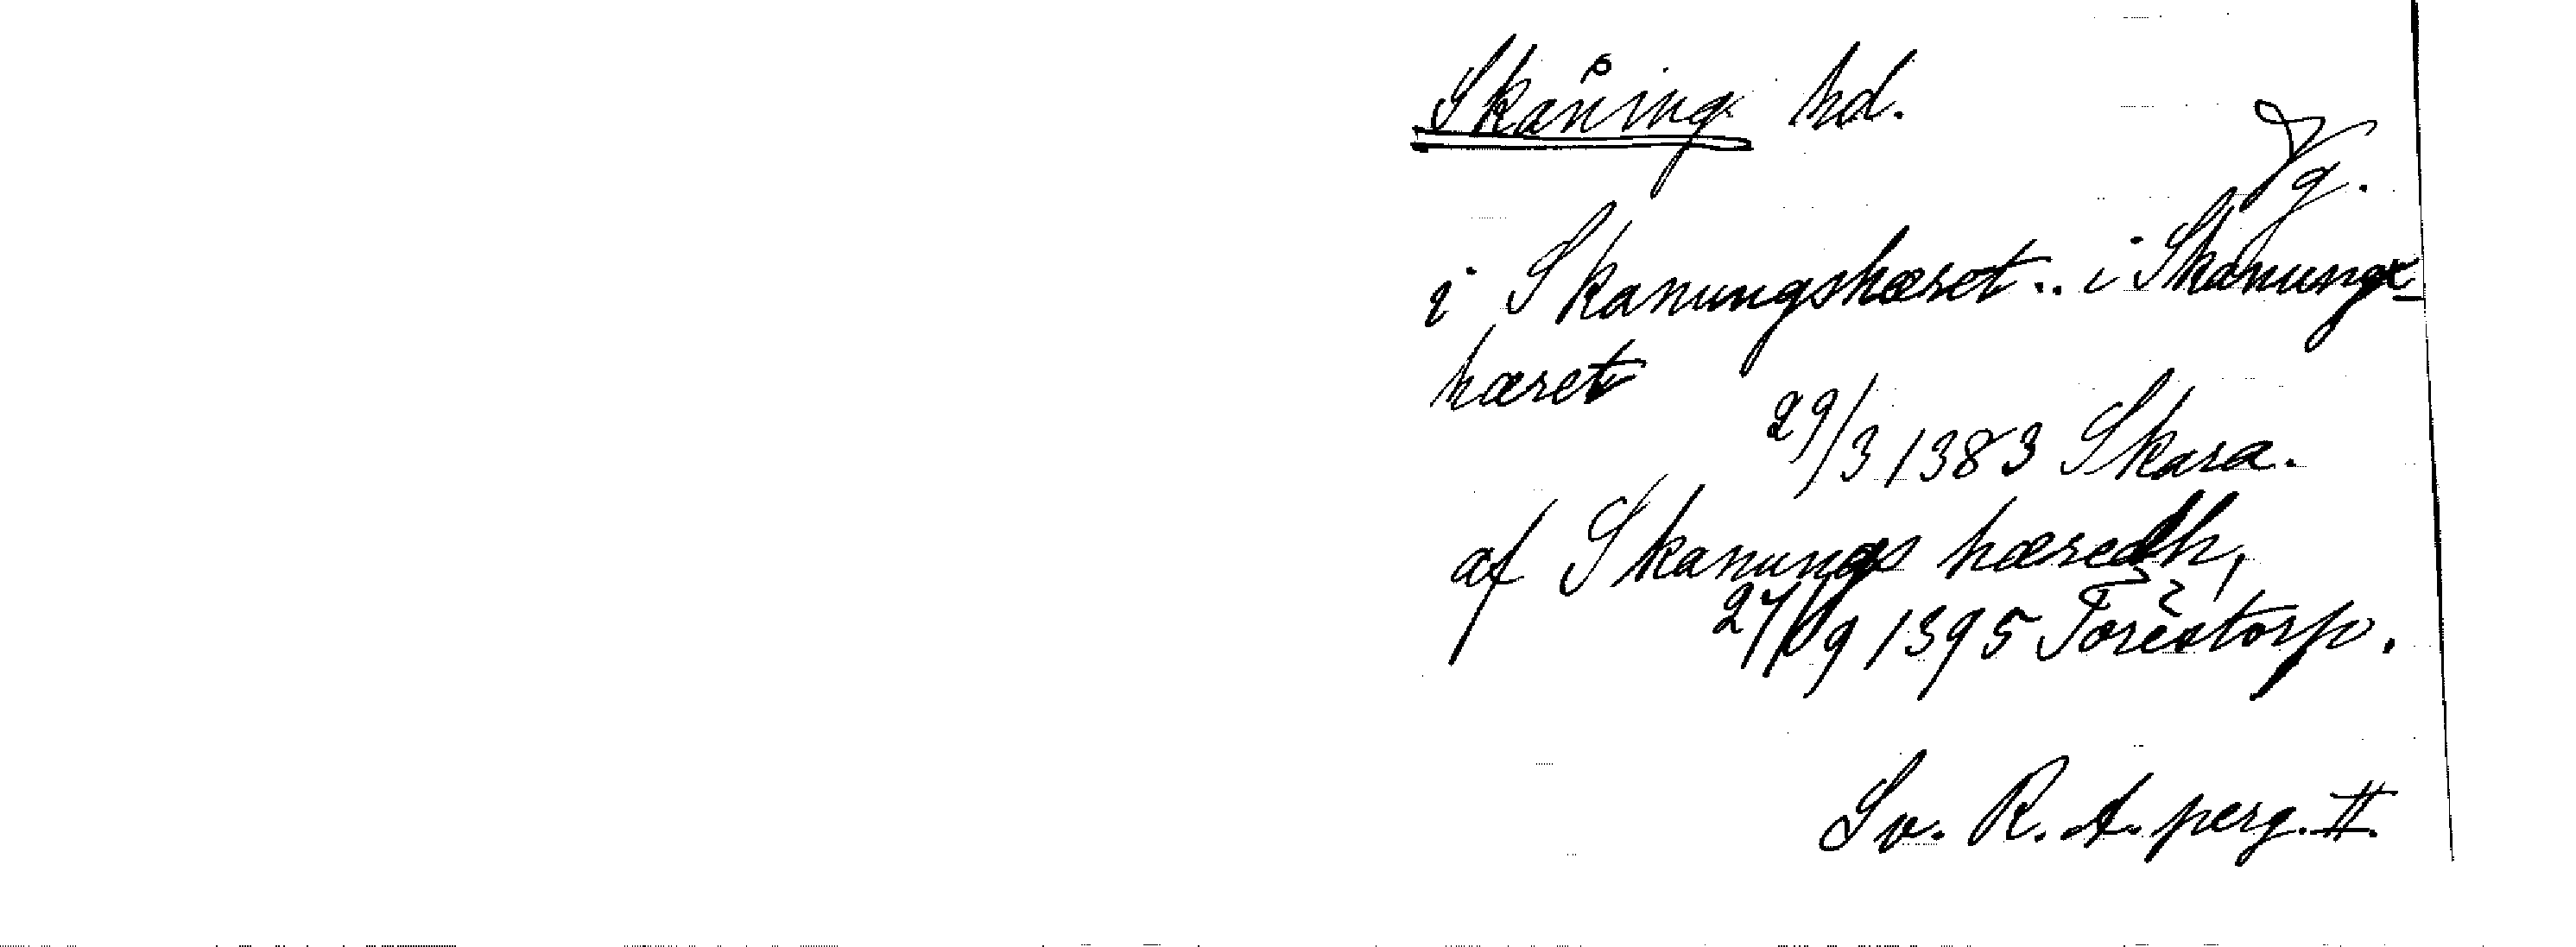 Skåning hd.
Vg.
i Skanungshæret .. i Skanungx-
hæret
29/3 1383 Skara.
af Skanungs hæredh,
27/9 1395 Torestorp.
Sv. R. A. perg. II.